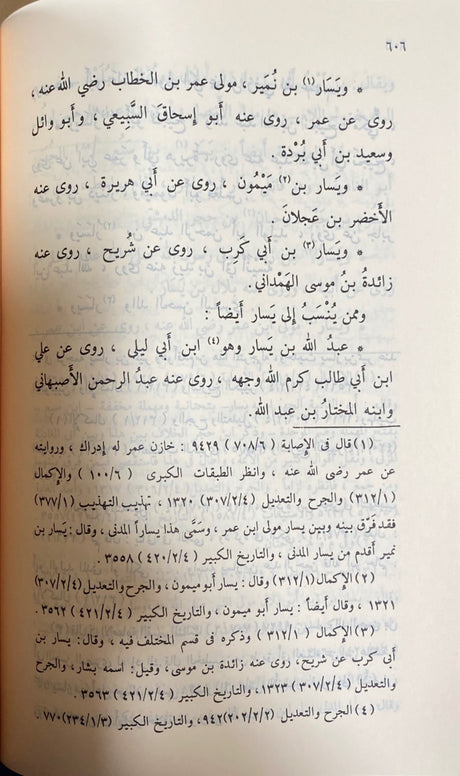 ٦٠٦
* ويَسَار(١) بن نُمَير، مولى عمر بن الخطاب رضي الله عنه،
روى عن عمر، روى عنه أبو إسحاقَ السَّبِيعي، وأبو وائل
وسعيد بن أبي بُرْدة.
* ويَسَار بن(٢) مَيْمُون، روى عن أبي هريرة، روى عنه
الأَخضر بن عَجلانَ.
* ويَسَار(٣) بن أبي كَرِب، روى عن شُريح، روى عنه
زائدةُ بنُ موسى الهَمْداني.
وممن يُنْسَبُ إلى يَسار أيضاً:
* عبدُ الله بن يَسَار وهو(٤) ابن أبي ليلى، روى عن علي
ابن أبي طالب كرم الله وجهه، روى عنه عبدُ الرحمن الأصبهاني
وابنه المختارُ بن عبد الله.
(١) قال في الإصابة (٧٠٨/٦) ٩٤٢٩: خازن عمر له إدراك، وروايته
عن عمر رضي الله عنه، وانظر الطبقات الكبرى (١٠٠/٦) والإكمال
(٣١٢/١) والجرح والتعديل (٣٠٧/٢/٤) ١٣٢٠، تهذيب التهذيب (٣٧٧/١)
فقد فَرَّق بينه وبين يسار مولى ابن عمر، وسَمَّى هذا يساراً المدنى، وقال: يَسار بن
نمير أقدم من يسار المدنى، والتاريخ الكبير (٤٢٠/٢/٤) ٣٥٥٨.
(٢) الإكمال (٣١٢/١) وقال: يسار أبو ميمون، والجرح والتعديل (٣٠٧/٢/٤)
١٣٢١، وقال أيضاً: يسار أبو ميمون، والتاريخ الكبير (٤٢١/٢/٤) ٣٥٦٢.
(٣) الإكمال (٣١٢/١) وذكره في قسم المختلف فيه، وقال: يسار بن
أبي كرب عن شريح، روى عنه زائدة بن موسى، وقيل: اسمه بشار، والجرح
والتعديل (٣٠٧/٢/٤) ١٣٢٣، والتاريخ الكبير (٤٢١/٢/٤) ٣٥٦٣.
(٤) الجرح والتعديل (٢٠٢/٢/٢) ٩٤٢، والتاريخ الكبير (٢٣٤/١/٣) ٧٧٠.